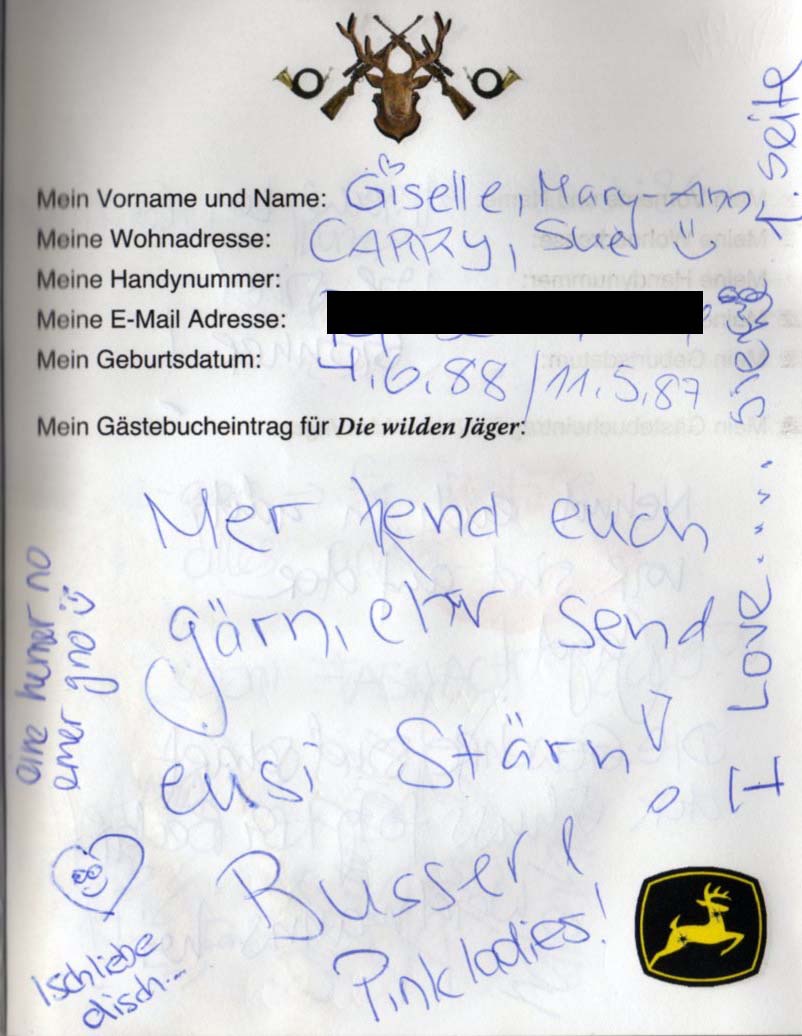 Mein Vorname und Name: Giselle, Mary-Ann,
Meine Wohnadresse: CARRY, Sue
Meine Handynummer:
Meine E-Mail Adresse:
Mein Geburtsdatum: 4.6.88 / 11.5.87
Mein Gästebucheintrag für Die wilden Jäger:
Mer hend euch
gärn, ehr send
eusi Stärn!
Busserl
Pinkladies!
eine hemer no
emer gno
Ischliebe
disch...
I LOVE.....
1. Seite